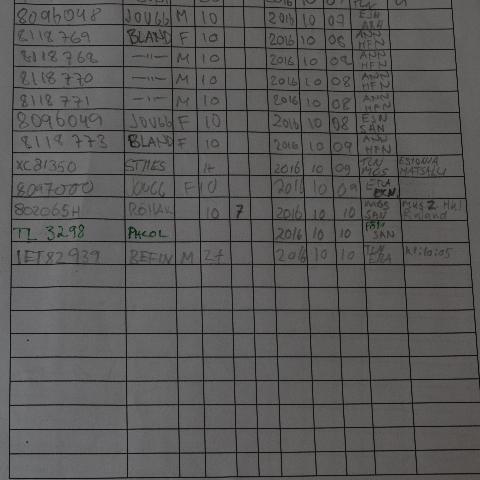 8096048 JOUGG M 10 2016 10 07 EJN
8118769 BLAND F 10 2016 10 08 ANN HFN
8118768 —"— M 10 2016 10 08 ANN HFN
8118770 —"— M 10 2016 10 08 ANN HFN
8118771 —"— M 10 2016 10 08 ANN HFN
8096049 JOUGG F 10 2016 10 08 EJN SAN
8118773 BLAND F 10 2016 10 09 ANN HFN
XC81350 2016 10 09 TLN MOS ESTONIA MATSALU
8097000 JOUGG F 10 2016 10 09
802065H 10 7 2016 10 10 MOS SAN Finland
TL 3298 2016 10 10 SAN
1ET82939 M 2+ 2016 10 10 TLN